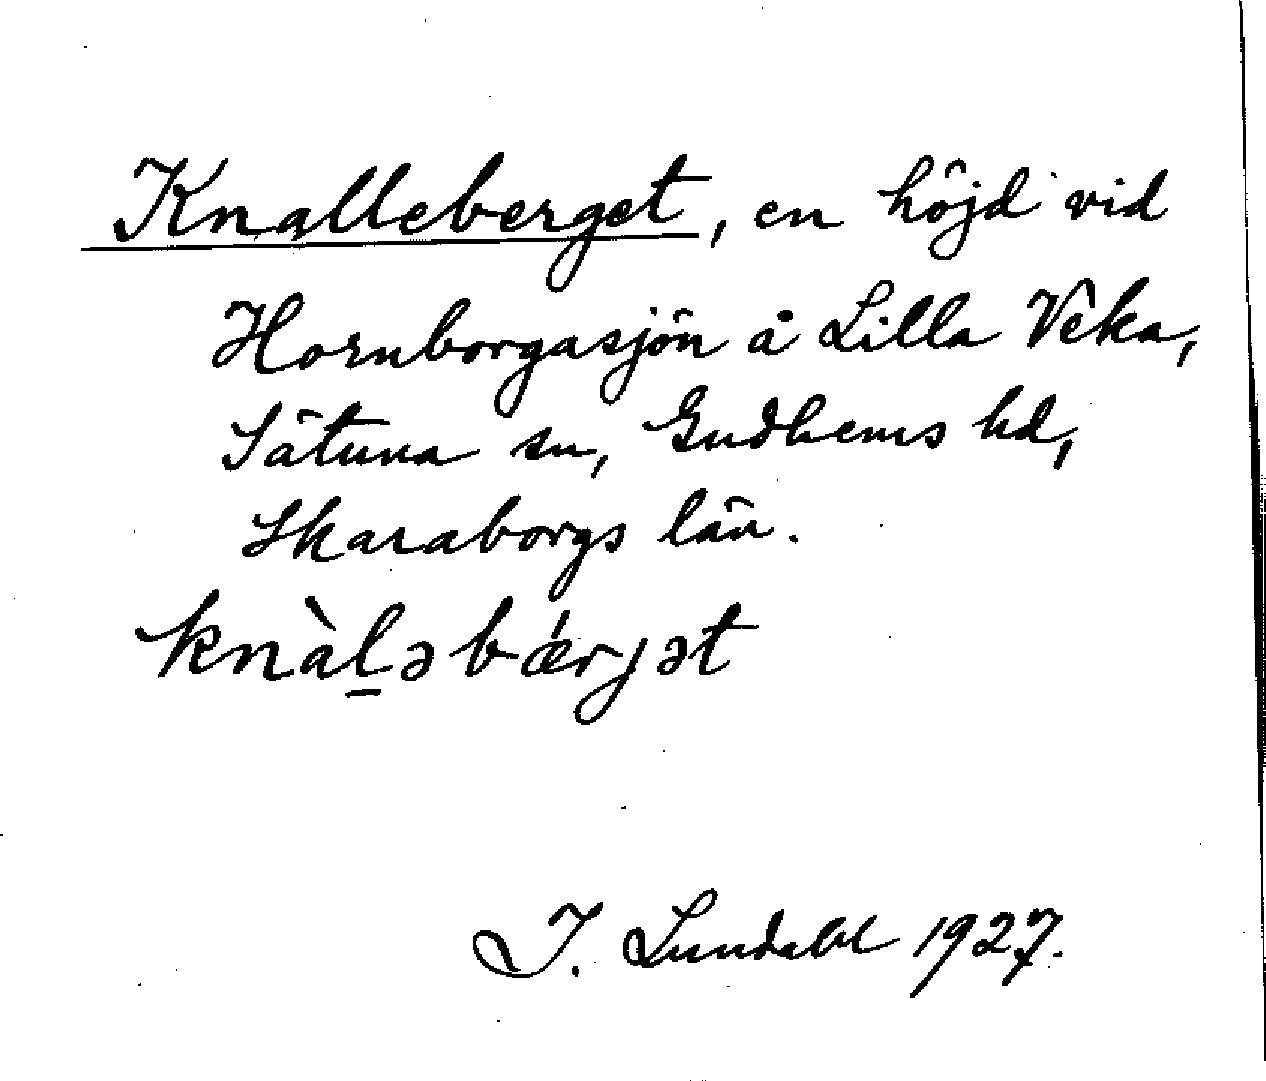 Knalleberget, en höjd vid
Hornborgasjön å Lilla Veka,
Sätuna sn, Gudhems hd,
Skaraborgs län.
knàl̠əbǽrjət
I. Lundahl 1927.